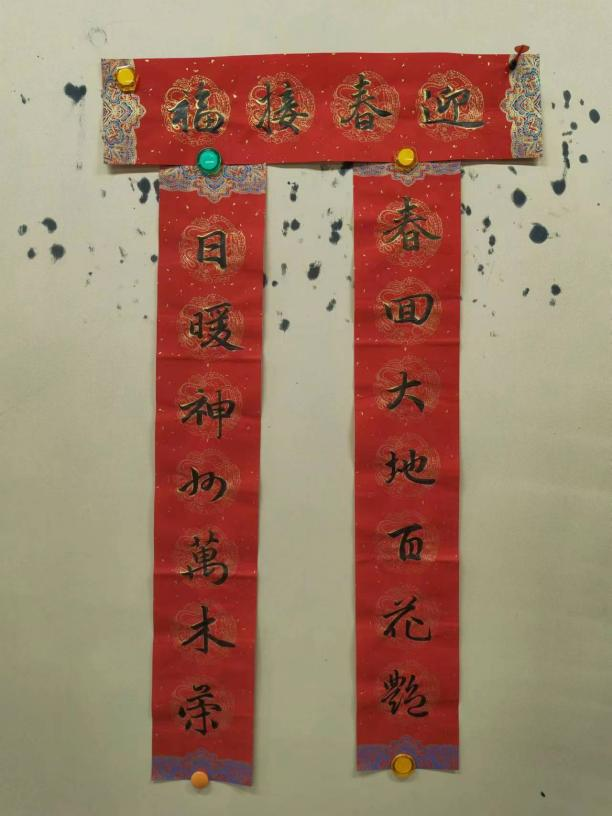 迎春接福
春回大地百花艷
日暖神州萬木荣